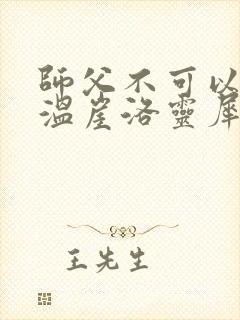 師父不可以
溫崖洛靈犀
王先生